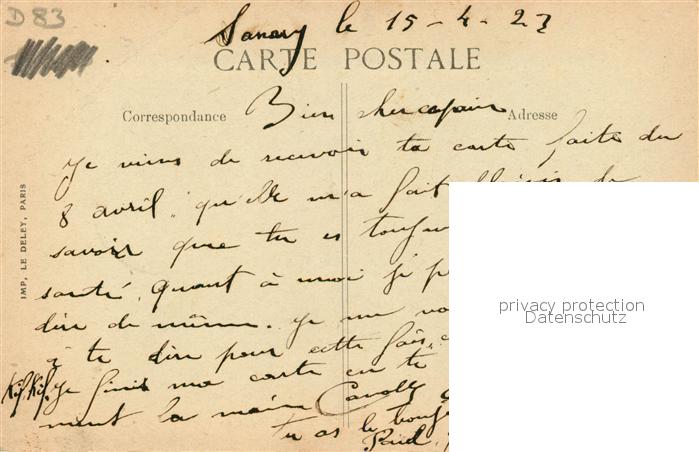 D 83
Sanary le 15-4-23
CARTE POSTALE
Correspondance
Adresse
Bien cher copain
Je viens de recevoir ta carte faite du
8 avril qu'elle m'a fait plaisir de
savoir que tu es
santé. Quant à moi je
dire de même. Je ne
à te dire pour cette fois,
Kif Kif. Je finis ma carte en te
ment la main
tu as le
Paul
IMP. LE DELEY, PARIS
privacy protection
Datenschutz